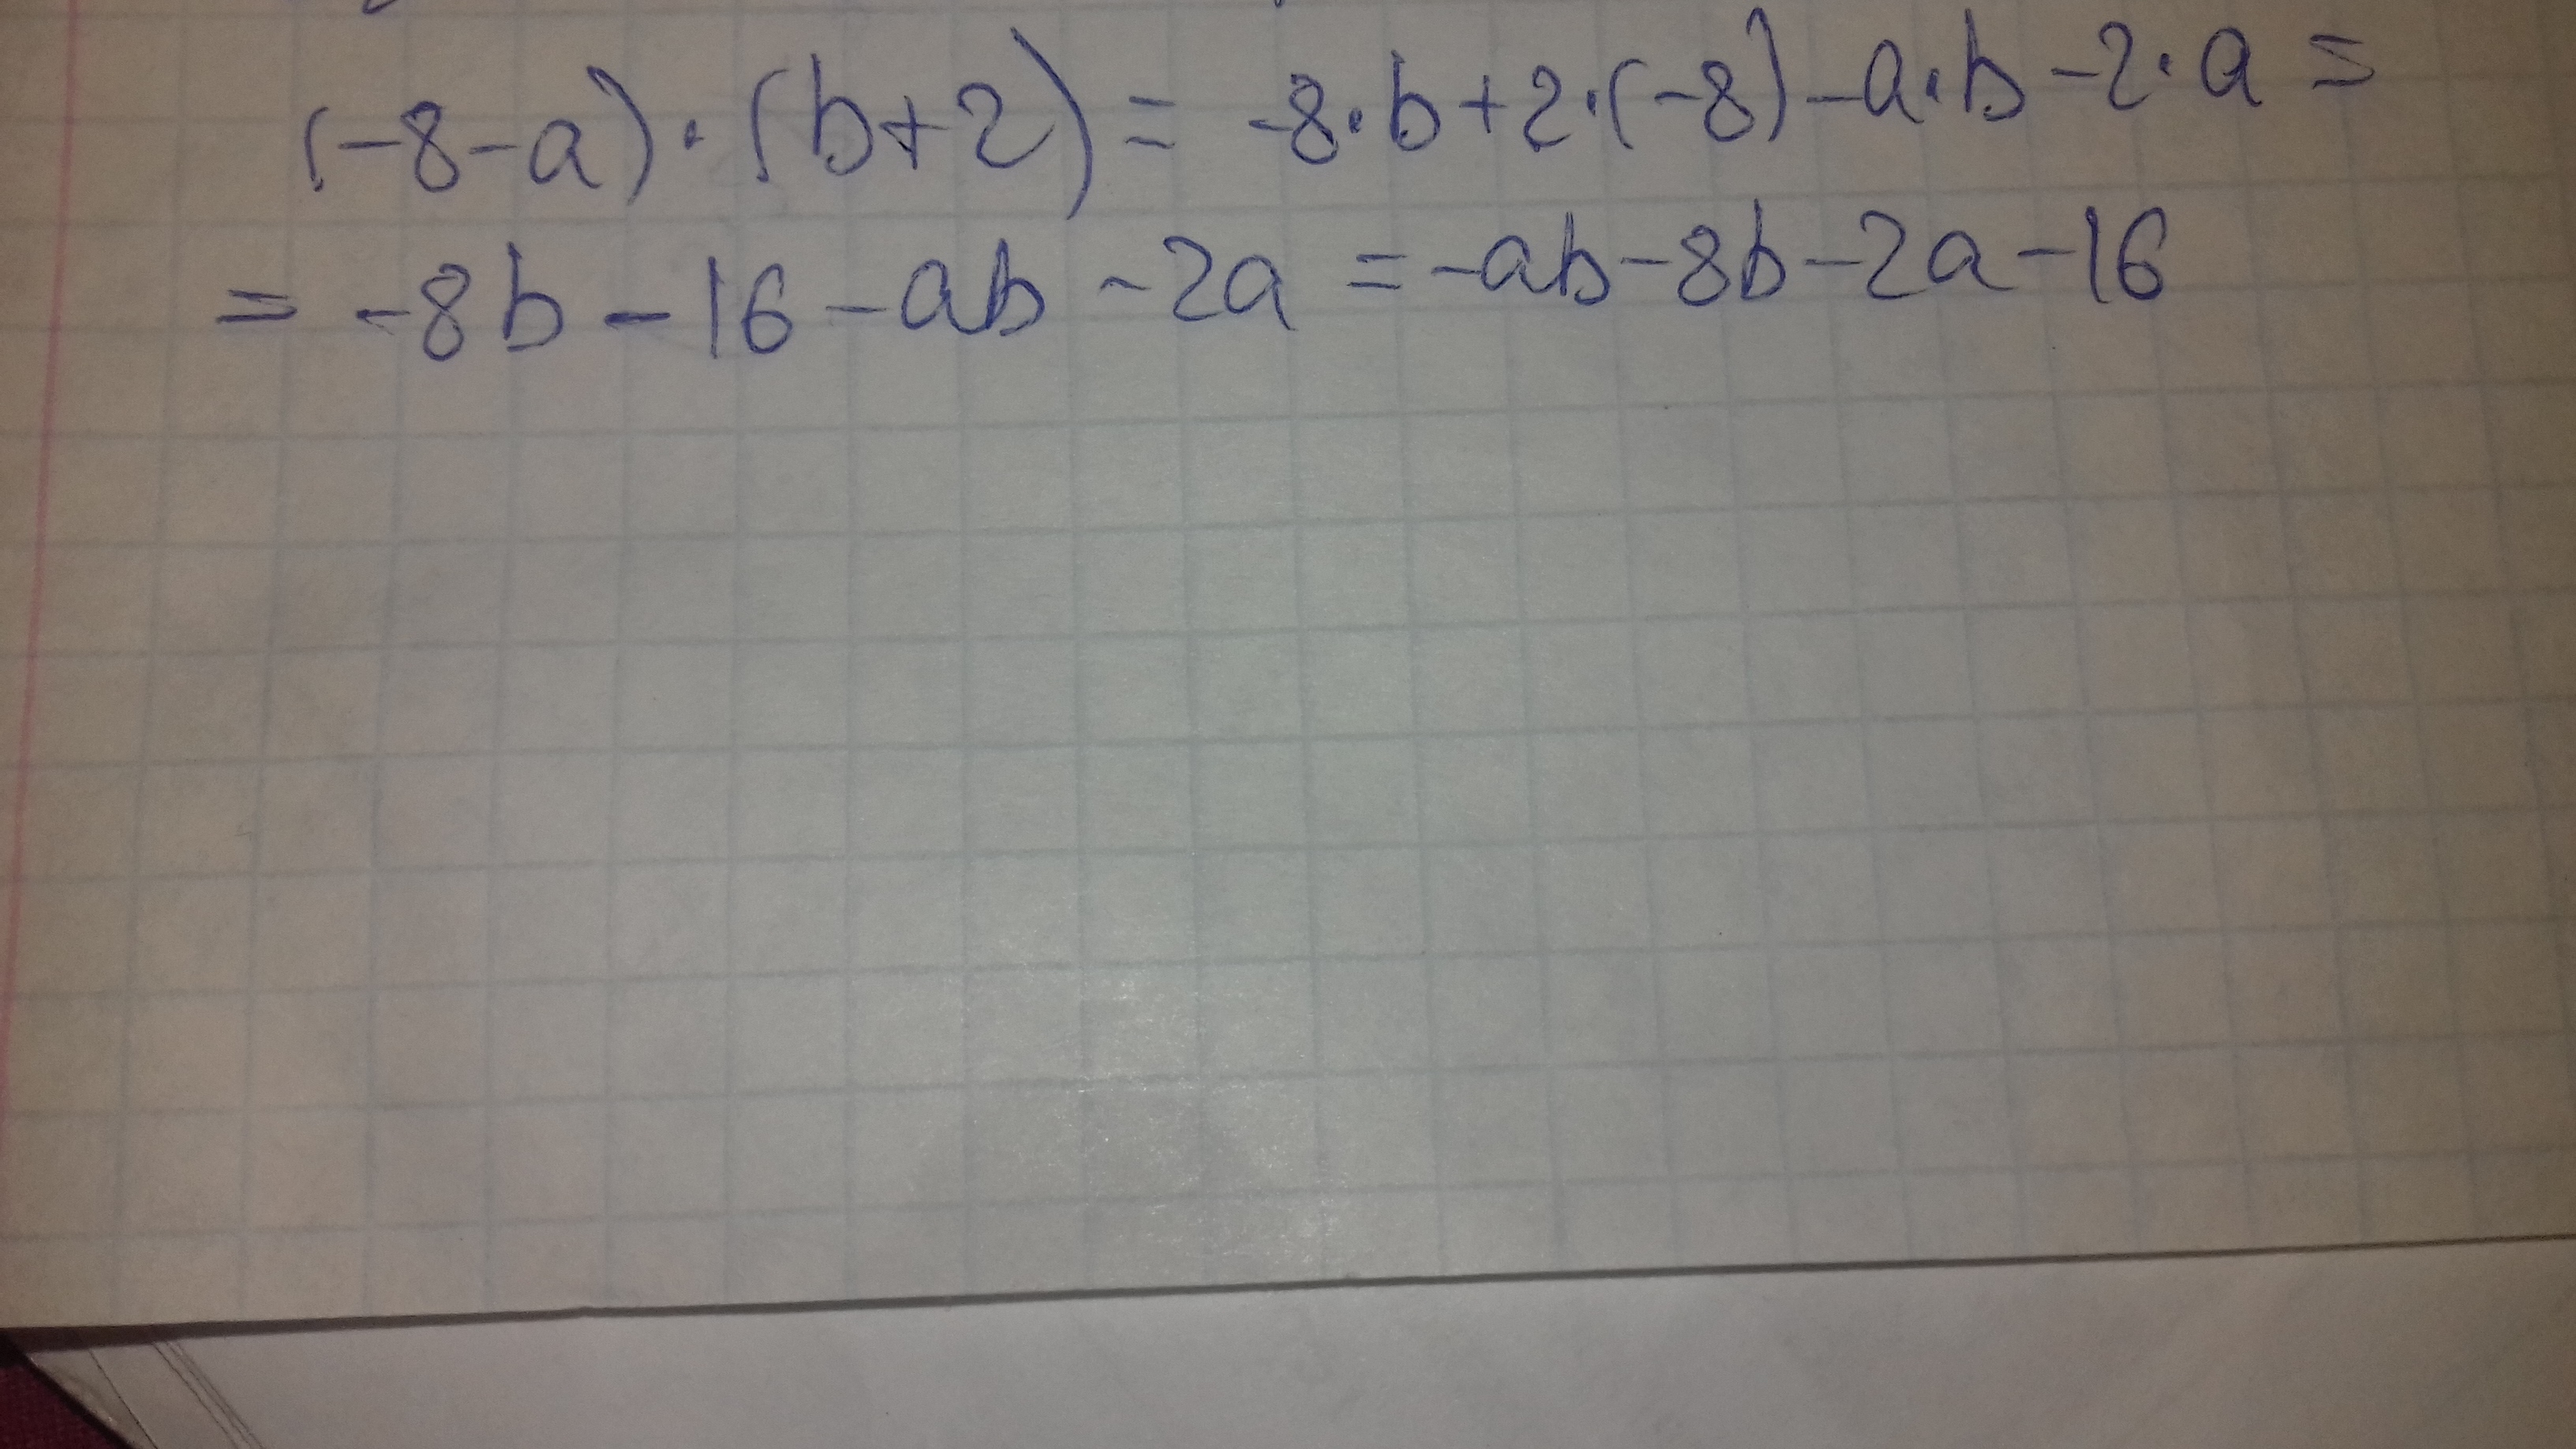 (-8-a)·(b+2)= -8·b+2·(-8)-a·b-2·a=
= -8b-16-ab-2a=-ab-8b-2a-16